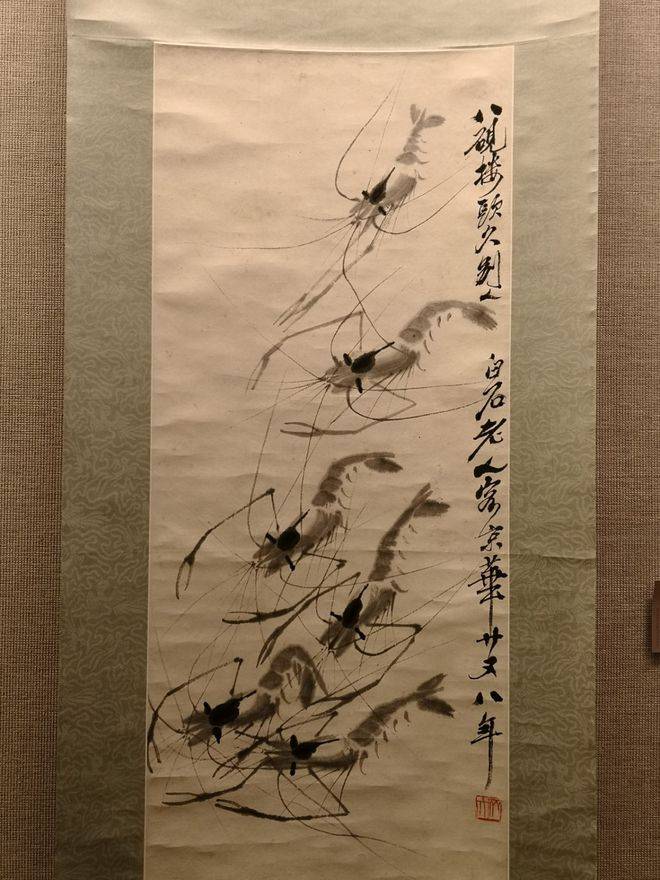 八硯樓頭久別人 白石老人客京華廿又八年